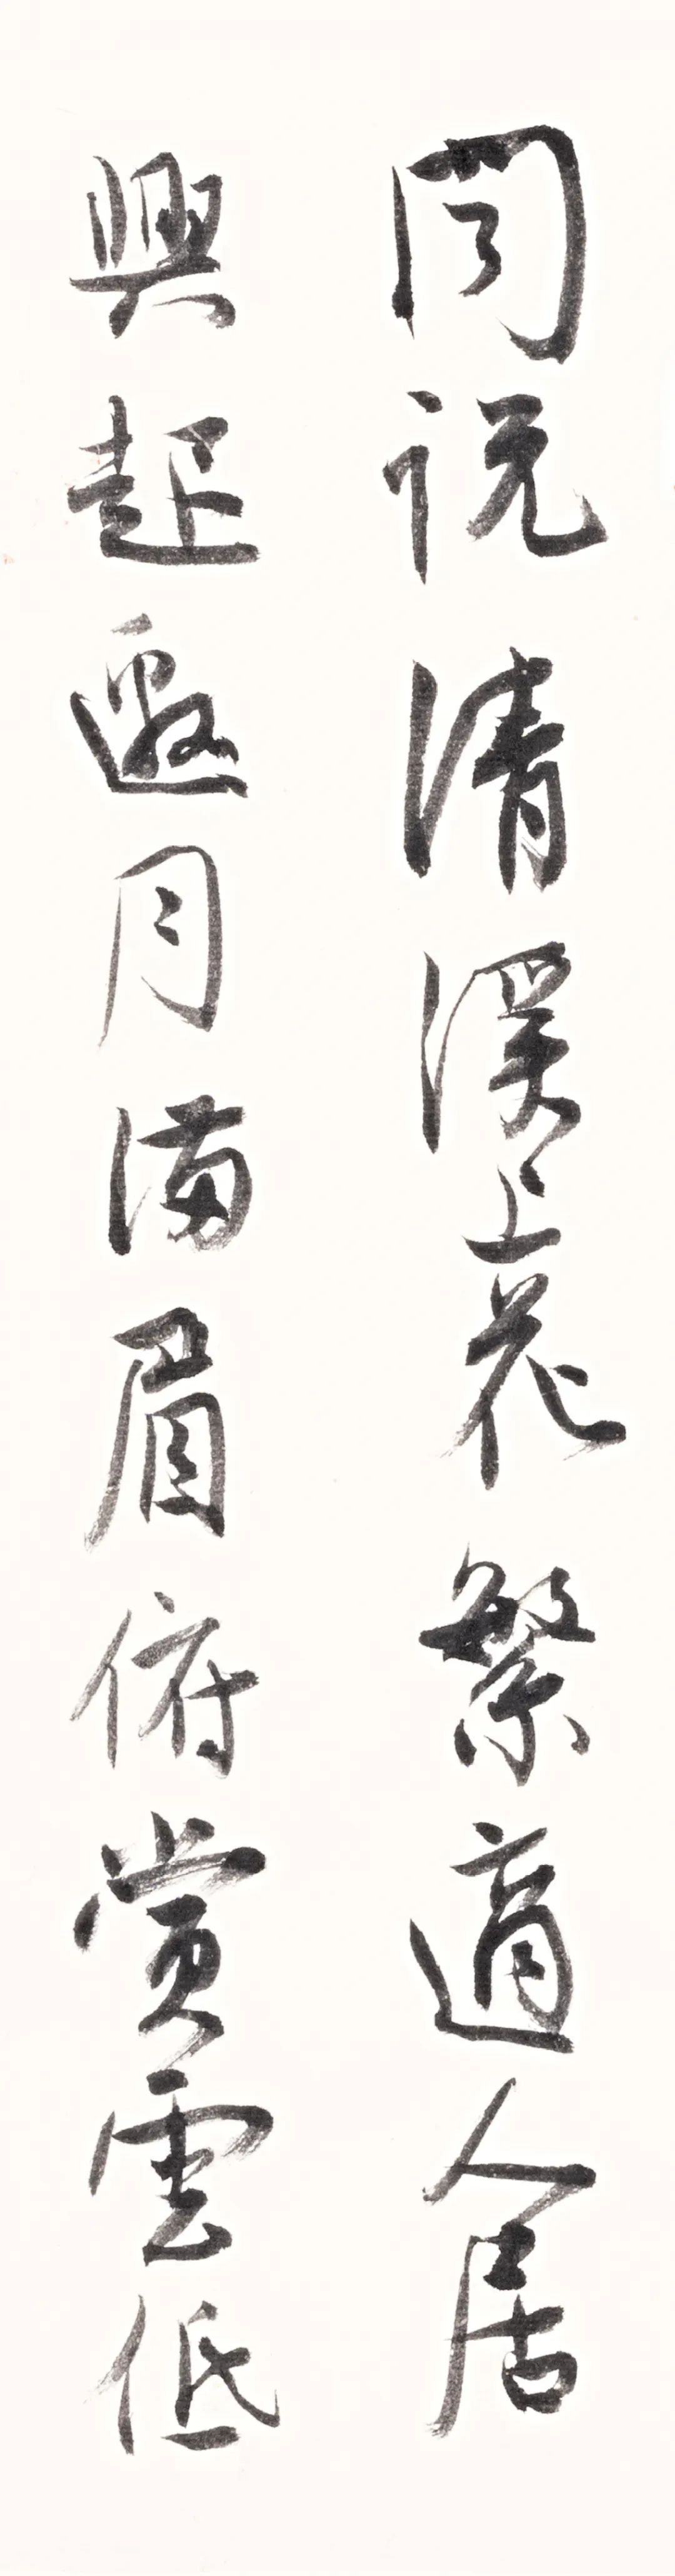 聞説清溪上花繁適人居
興起邀月滿眉俯賞雲低